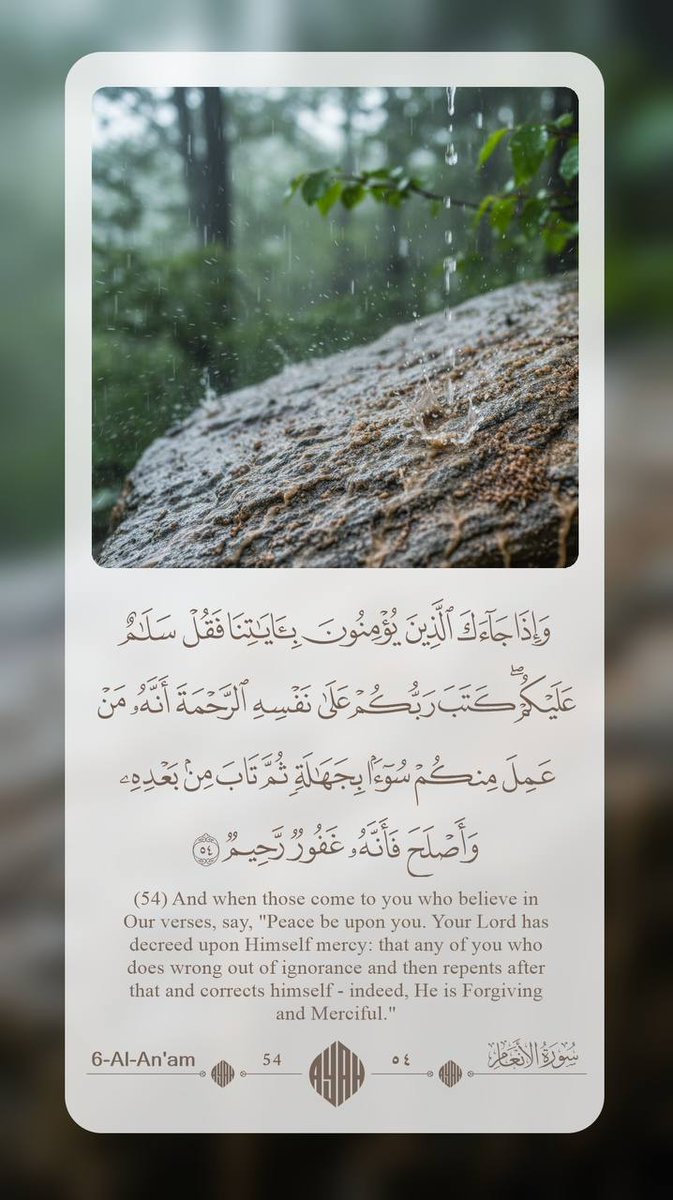 وَإِذَا جَآءَكَ ٱلَّذِينَ يُؤْمِنُونَ بِـَٔايَـٰتِنَا فَقُلْ سَلَـٰمٌ
عَلَيْكُمْ ۖ كَتَبَ رَبُّكُمْ عَلَىٰ نَفْسِهِ ٱلرَّحْمَةَ أَنَّهُۥ مَنْ
عَمِلَ مِنكُمْ سُوٓءًۢا بِجَهَـٰلَةٍ ثُمَّ تَابَ مِنۢ بَعْدِهِۦ
وَأَصْلَحَ فَأَنَّهُۥ غَفُورٌ رَّحِيمٌ ٥٤
(54) And when those come to you who believe in
Our verses, say, "Peace be upon you. Your Lord has
decreed upon Himself mercy: that any of you who
does wrong out of ignorance and then repents after
that and corrects himself - indeed, He is Forgiving
and Merciful."
6-Al-An'am AYAH 54 AYAH ٥٤ AYAH سُورَةُ الأَنْعَامِ